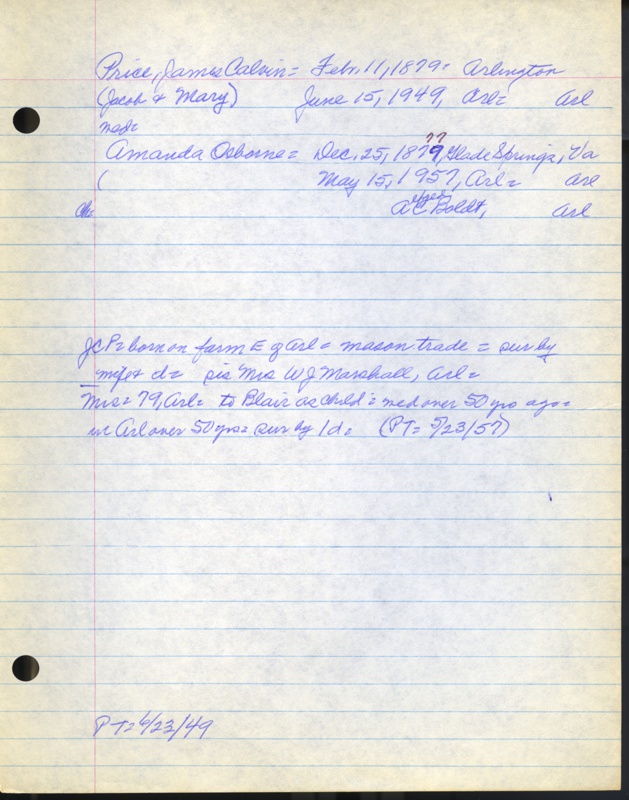 Price, James Calvin = Febr. 11, 1879 = Arlington
(Jacob & Mary) June 15, 1949, Arl = Arl
med =
77
Amanda Osborne = Dec. 25, 1879, Glade Springs, Va
( May 15, 1957, Arl = Arl
Ch = A C Boldt, Arl
JCP = born on farm E of Arl = mason trade = sur by
wife & d = sis Mrs W J Marshall, Arl =
Mrs = 79, Arl = to Blair as child = med over 50 yrs ago =
in Arl over 50 yrs = sur by 1 d = (PT = 5/23/57)
PT = 6/23/49